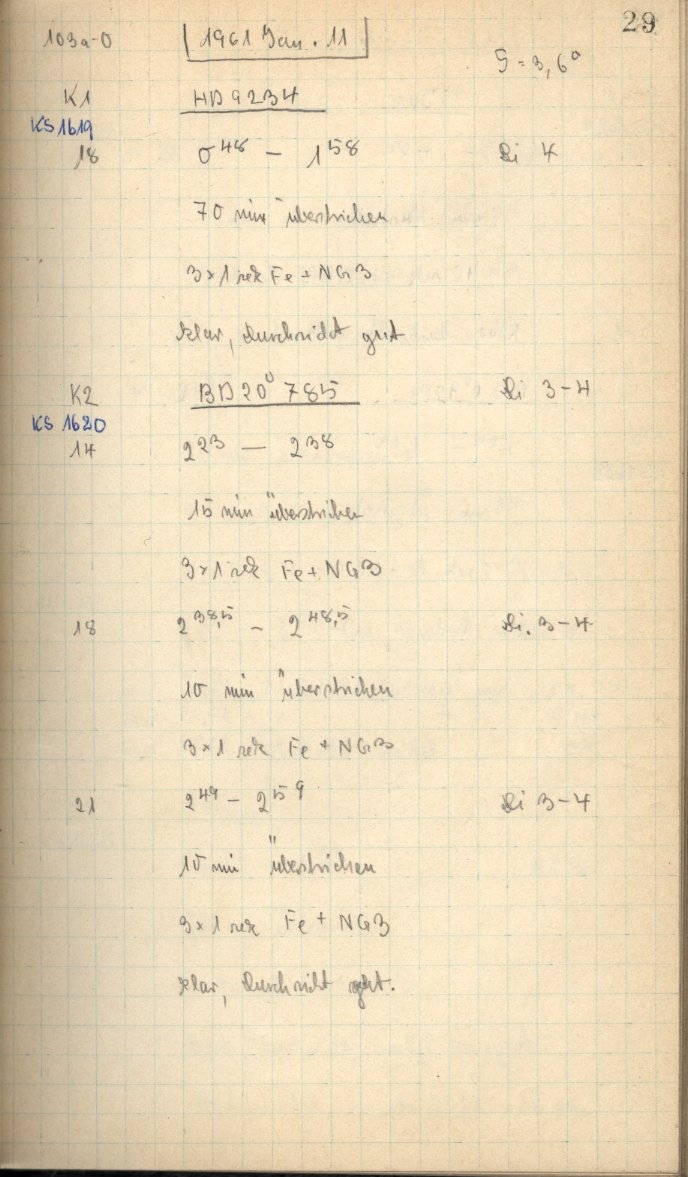 29
103a-O 1961 Jan. 11
S = 3,6°
K1 HD 9234
KS 1619
18 0 48 – 1 58 Bi 4
70 min überstrichen
3×1 sek Fe + NG3
klar, Durchsicht gut
K2 BD 20° 785 Bi 3-4
KS 1620
14 2 23 — 2 38
15 min überstrichen
3×1 sek Fe + NG3
18 2 38,5 – 2 48,5 Bi. 3-4
10 min überstrichen
3×1 sek Fe + NG3
21 2 49 – 2 59 Bi 3-4
10 min überstrichen
3×1 sek Fe + NG3
klar, Durchsicht gut.